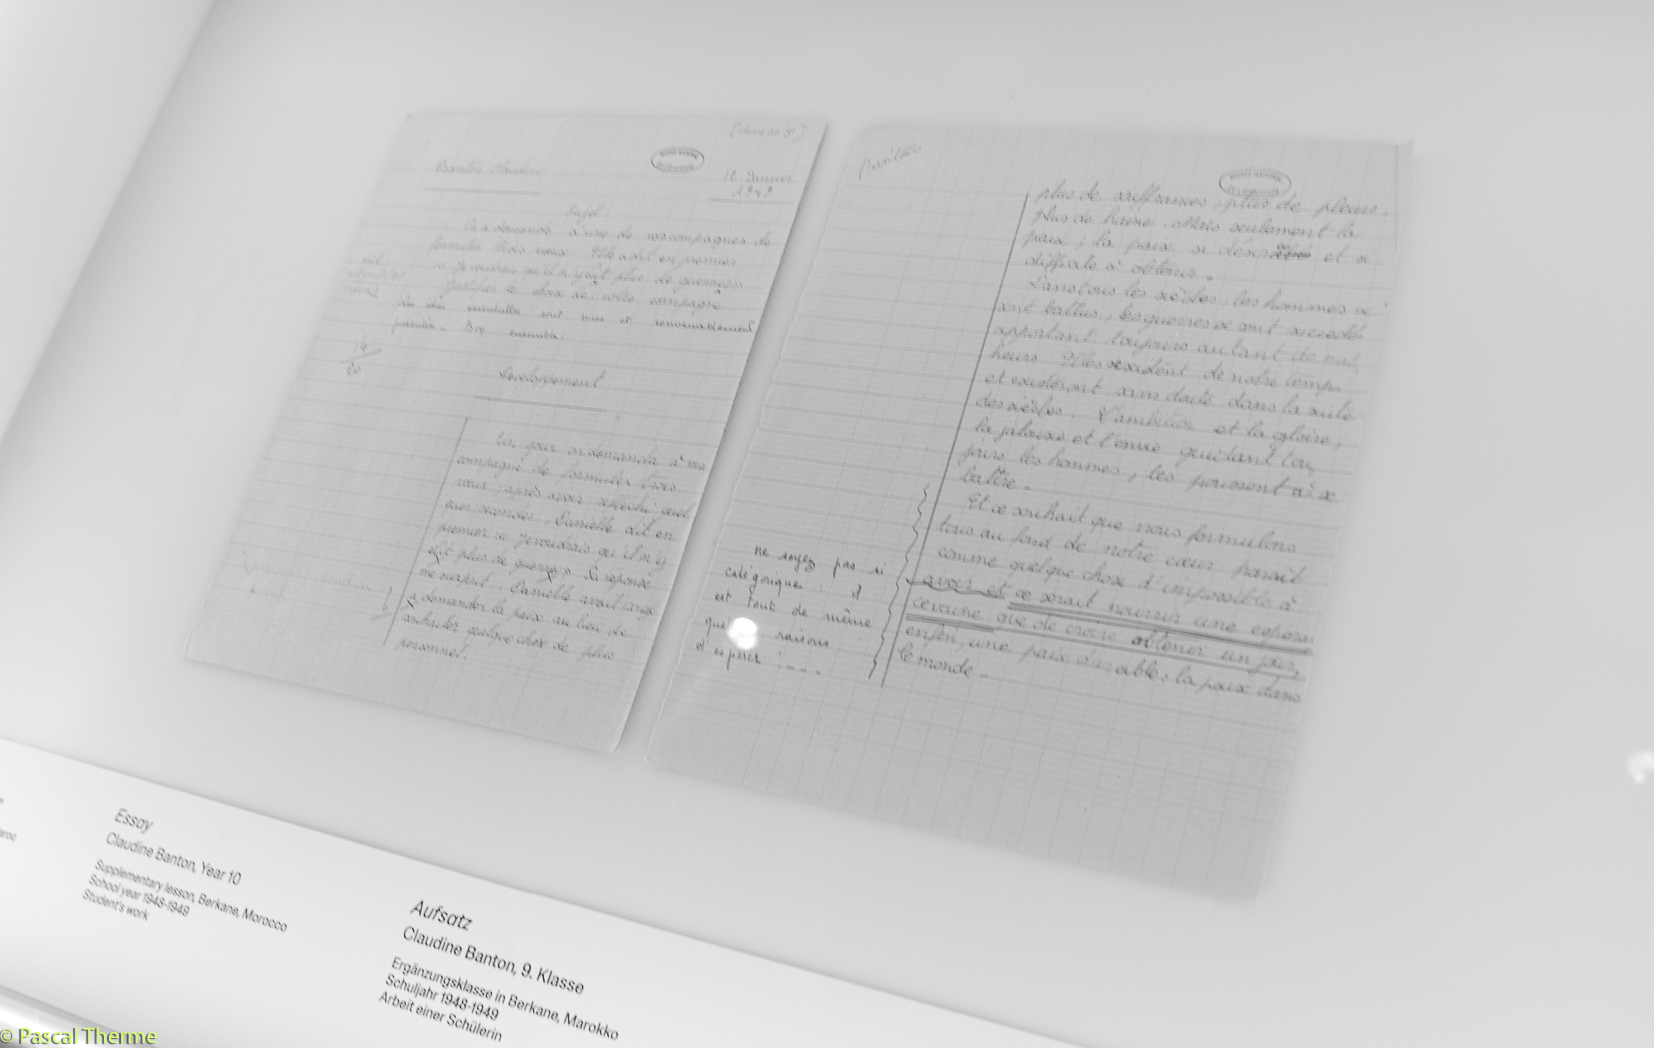 Banton Claudine
12 Janvier
1949
Sujet :
On a demandé à une de vos compagnes de
formuler trois voeux. Elle a dit en premier
« Je voudrais qu'il n'y eût plus de guerres »
Justifier le choix de votre compagne
Les idées essentielles sont vues et convenablement
présentées. Bon ensemble.
14
20
Développement
Un jour on demanda à ma
compagne de formuler trois
voeux ; après avoir réfléchi quel
ques secondes, Danielle dit en
premier « Je voudrais qu'il n'y
eût plus de guerres ». La réponse
me surprit. Danielle avait
demander la paix au lieu de
souhaiter quelque chose de plus
personnel.
Banton
plus de souffrances, plus de pleurs,
plus de haine. Mais seulement la
paix ; la paix si désirée et si
difficile à obtenir.
Dans tous les siècles, les hommes se
sont battus, les guerres se sont succédé
apportant toujours autant de mal
heurs. Elles existent de notre temps
et existeront sans doute dans la suite
des siècles. L'ambition et la gloire,
la jalousie et l'envie guidant tou
jours les hommes, les poussent à se
battre.
Et ce souhait que nous formulons
tous au fond de notre coeur paraît
comme quelque chose d'impossible à
avoir et ce serait nourrir une espéran
ce vaine que de croire obtenir un jour,
enfin, une paix durable, la paix dans
le monde.
ne soyez pas si
catégorique : il
est tout de même
raisons
d'espérer : ....
Essay
Claudine Banton, Year 10
Supplementary lesson, Berkane, Morocco
School year 1948-1949
Student's work
Aufsatz
Claudine Banton, 9. Klasse
Ergänzungsklasse in Berkane, Marokko
Schuljahr 1948-1949
Arbeit einer Schülerin
© Pascal Therme